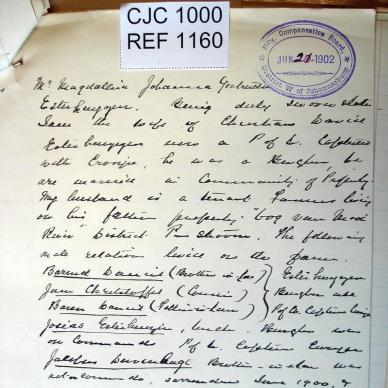 CJC 1000
REF 1160
Mily. Compensation Board,
JUN 21 1902
District W of Johannesburg
Mrs Magdallia Johanna Gertruida
Esterhuyzen. Being duly sworn state
I am the wife of Christian David
Esterhuyzen now a P of W. Captured
with Cronje, he was a Burgher, we
are married in Community of Property
My husband is a tenant Farmer living
on his father's property
River District P. The following
male relations lived on the farm.
Barend Daniel (Brother in law) Esterhuyzen
Jan Christoffel (Cousin) Burghers all
Barend Daniel (Father in law) P of W. Captured Cronje
Josias Esterhuyzen, Uncle. Burgher was
on Commando P of W. Captured Cronje
Brother in law was
on Commando, surrendered June 1900, &